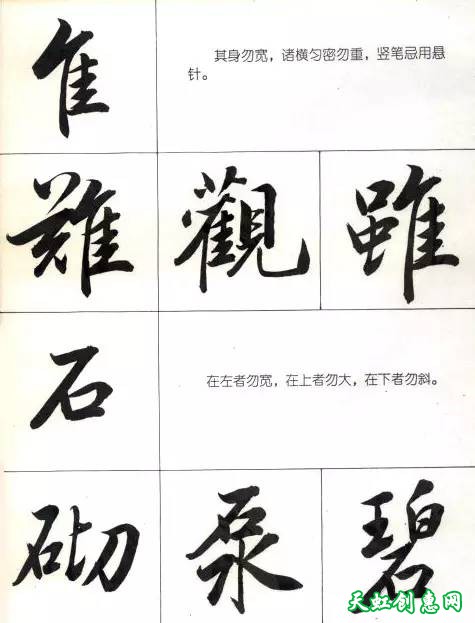 隹
其身勿宽，诸横匀密勿重，竖笔忌用悬
针。
難 觀 雖
石
在左者勿宽，在上者勿大，在下者勿斜。
砌 泵 碧
天虹创惠网